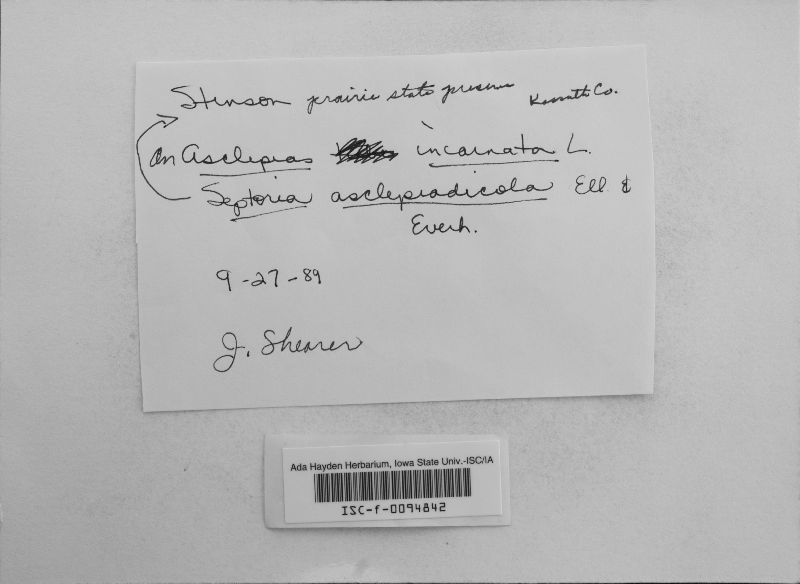 Stinson prairie state preserve Kossuth Co.
on Asclepias incarnata L.
Septoria asclepiadicola Ell. &
Everh.
9-27-89
J. Shearer
Ada Hayden Herbarium, Iowa State Univ.-ISC/IA
ISC-f-0094842